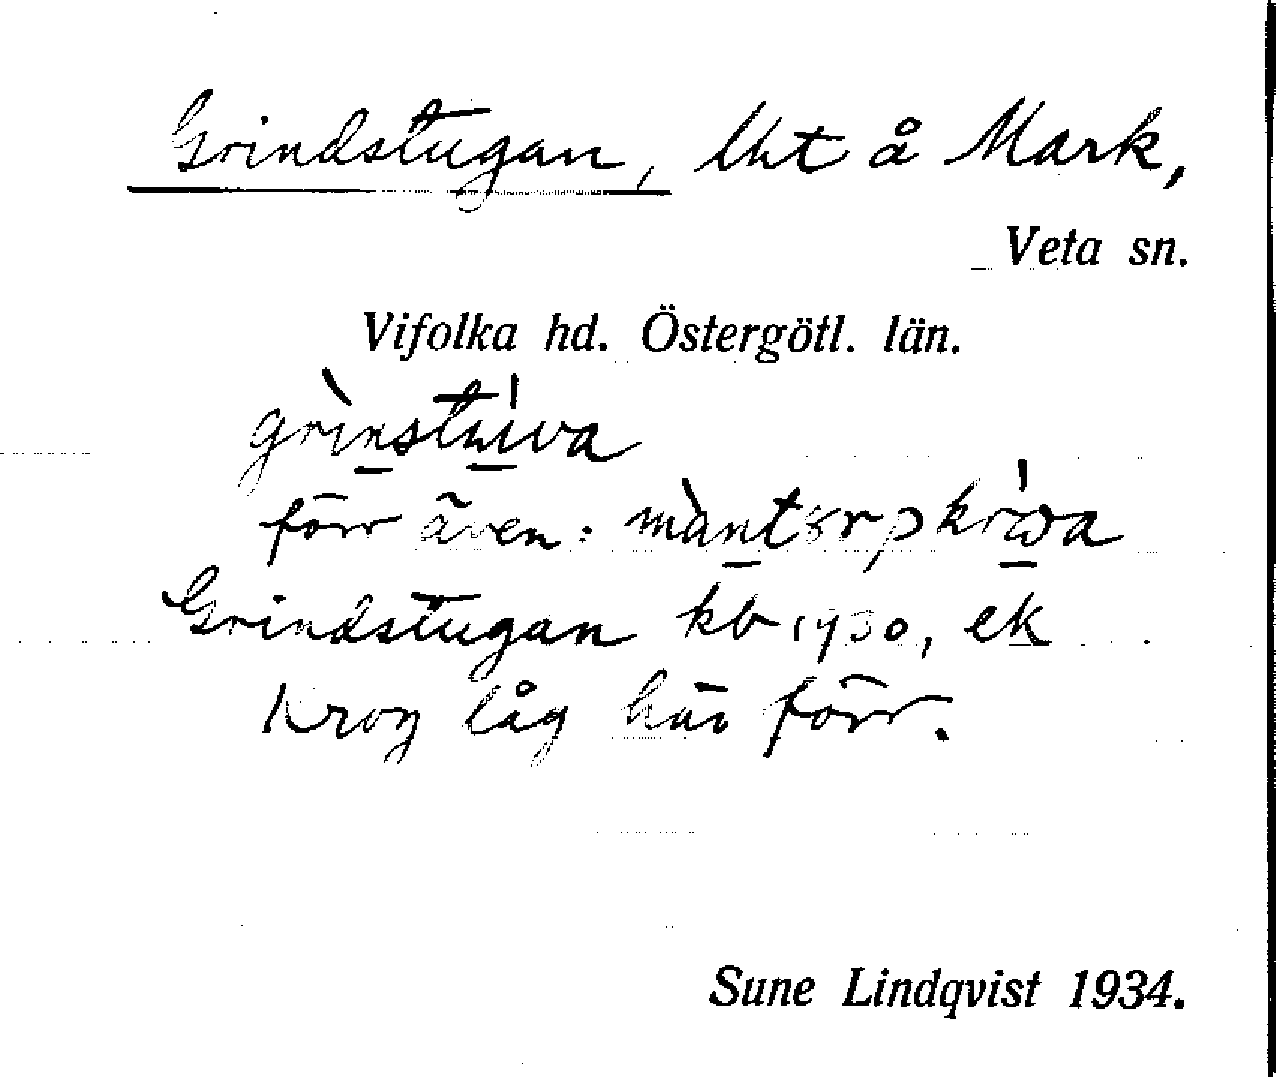 Grindstugan, lht å Mark,
Veta sn.
Vifolka hd. Östergötl. län.
grìnstúva
förr även: màntorpkrówa
Grindstugan kb 1930, ek
Krog låg här förr.
Sune Lindqvist 1934.